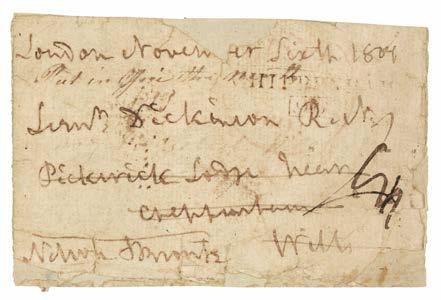 London November Sixth 1801
Put in Office this
Lieut Dickinson R. Ny
Pickwick Lodge near
Cheppenham
Nelson & Bronte Wilts